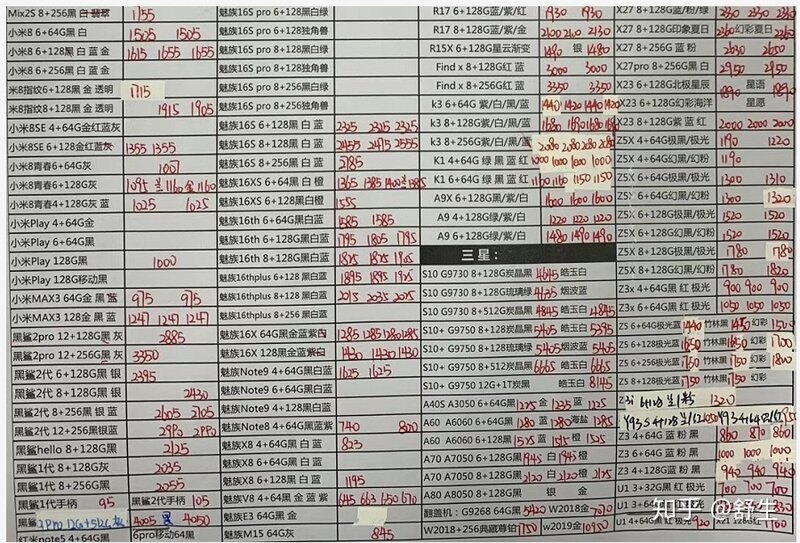 Mix2S 8+256G黑白 1755
小米8 6+64G黑白 1505 1505
小米8 6+128G黑 白 蓝 金 1615 1655 1655
小米8 6+256G黑 白 金
米8指纹6+128黑 金 透明 1715
米8指纹8+128黑 金 透明 1915 1905
小米8SE 4+64G金红蓝灰
小米8SE 6+128金红蓝灰 1355 1355
小米8青春6+64G灰
小米8青春6+128G灰 1095 1160 金1160
小米8青春4+128G灰 蓝 1025 1025
小米Play 4+64G金
小米Play 6+64G黑
小米Play 128G黑 1000
小米Play 128G移动黑
小米MAX3 64G金 黑 蓝 975 975
小米MAX3 128金 黑 蓝 1247 1247 1247
黑鲨2pro 12+128G黑 灰 2885
黑鲨2pro 12+256G黑 灰 3350
黑鲨2代 6+128G黑 银 2395
黑鲨2代 8+128G黑 银 2430
黑鲨2代 8+256黑 银 蓝 2605 2705
黑鲨2代 12+256黑银蓝
黑鲨hello 8+128G黑 2125
黑鲨1代 8+128G灰 2035
黑鲨1代 8+256G黑 2055
黑鲨1代手柄 95 黑鲨2代手柄 105
黑鲨2Pro 12G+512G 灰 4005 黑 4050
红米note5 4+64G黑 6pro移动64黑
魅族16S pro 6+128黑白绿
魅族16S pro 8+128黑白绿
魅族16S pro 6+128独角兽
魅族16S pro 8+128独角兽
魅族16S pro 8+256黑白绿
魅族16S pro 8+256独角兽
魅族16S 6+128黑 白 蓝 2325 2325 2325
魅族16S 8+128黑 白 蓝 2455 2475 2555
魅族16S 8+256黑 蓝 2785
魅族16XS 6+64G黑 白 橙
魅族16XS 6+128黑白橙 1555
魅族16th 6+64G黑白蓝 1585 1585
魅族16th 6+128G黑白蓝 1795 1805 1795
魅族16th 8+128G黑白蓝 1825 1825 1905
魅族16thplus 6+128 黑白 1895 1895 1925
魅族16thplus 8+128 黑白 2015 2035 2025
魅族16thplus 8+256 黑白
魅族16X 64G黑金蓝紫白 1285 1285 1280 1285
魅族16X 128黑金蓝紫白 1430 1430 1430
魅族Note9 4+64G黑白蓝 1625 1625
魅族Note9 6+64G黑白蓝
魅族Note9 4+128黑白蓝
魅族Note8 4+64G黑蓝紫 740 820
魅族X8 4+64G黑 蓝 823
魅族X8 6+64G黑 白 蓝
魅族X8 6+128G黑 白 蓝 1195
魅族V8 4+64G黑 金 蓝 紫 645 663 650 670
魅族E3 64G黑 金
魅族M15 64G黑 845
R17 6+128G蓝/紫/红 1930 1930
R17 8+128G蓝/紫/红 2100 2100 2130
R15X 6+128G星云渐变 1490 银 1480
Find x 8+128G红 蓝 3000 3000
Find x 8+256G红 蓝 3350 3350
k3 6+64G 紫/白/黑/蓝 1440 1420 1440 1420
k3 8+128G紫/白/黑/蓝 1680 1690 1680 1680
k3 8+256G紫/白/黑/蓝 2080 2080 2080 2080
K1 4+64G 绿 黑 蓝 红 1000 1000 1000 1000
K1 6+64G 绿 黑 蓝 红 1160 1160 1150 1150
A9X 6+128G黑/白 1600 1600
A9 4+128G绿/紫/白 1220 1220 1220
A9 6+128G绿/紫/白 1480 1490 1490
三星:
S10 G9730 8+128G炭晶黑 4645 皓玉白
S10 G9730 8+128G琉璃绿 4635 烟波蓝
S10 G9730 8+512G炭晶黑 4845 皓玉白 4845
S10+ G9750 8+128炭晶黑 5405 皓玉白 5395
S10+ G9750 8+128琉璃绿 5405 烟波蓝 5405
S10+ G9750 8+512炭晶黑 6665 皓玉白 6665
S10+ G9750 12G+1T炭黑 皓玉白 8145
A40S A3050 6+64G黑 1275 金 1235 蓝 1225
A60 A6060 6+64G黑 1280 蓝 1280 海盐 1285
A60 A6060 6+128黑 1525 蓝 1515 橙 1525
A70 A7050 6+128G黑 1945 白 1945 橙
A70 A7050 8+128G黑 2120 白 2120 橙 2125
A80 A8050 8+128G黑 银 金
翻盖机: G9268 64G黑 5420 W2018金 7070
W2018+256典藏尊铂 1750 w2019金 10950
X27 8+128G黑/粉/蓝 2330 2350 2350
X27 8+128G印象夏日 2360 幻彩夏日 2360
X27 8+256G 蓝 粉 2630 2650
X27pro 8+256G黑 白 2950 2950
X23 6+128G北极星辰 1890 星语 1890
X23 6+128G幻彩海洋 星愿
X23 8+128G紫 蓝 红 2000 2000 2000
Z5X 4+64G极黑/极光 1190 1220
Z5X 4+64G幻黑/幻粉 1190
Z5X 6+64G极黑/极光 1300 1310
Z5X 6+64G幻黑/幻粉 1300 1320
Z5X 6+128G极黑/极光 1520 1520
Z5X 6+128G幻黑/幻粉 1520 1520
Z5X 8+128G极黑/极光 1780 1780
Z5X 8+128G幻黑/幻粉 1780 1820
Z3x 4+64G黑 红 极光 900 900 900
Z3x 6+64G黑 红 极光 1050 1050 1050
Z5 6+64G极光蓝 1440 竹林黑 1450 幻彩 1500
Z5 6+128极光蓝 1650 竹林黑 1650 幻彩 1700
Z5 6+256极光蓝 1750 竹林黑 1750 幻彩 1800
Z5 8+128极光蓝 1750 竹林黑 1750 幻彩
Z3i 6+128 1320
Z3 4+64G 蓝 粉 黑 860 870 860
Z3 6+64G 蓝 粉 黑 1000 1000 1000
Z3 4+128G蓝 粉 黑 940 940 940
U1 3+32G黑 红 极光 700 700 700
U1 3+64G
U1 4+64G黑 红 极光 920 X21 128G红 1100
知乎 @舒生